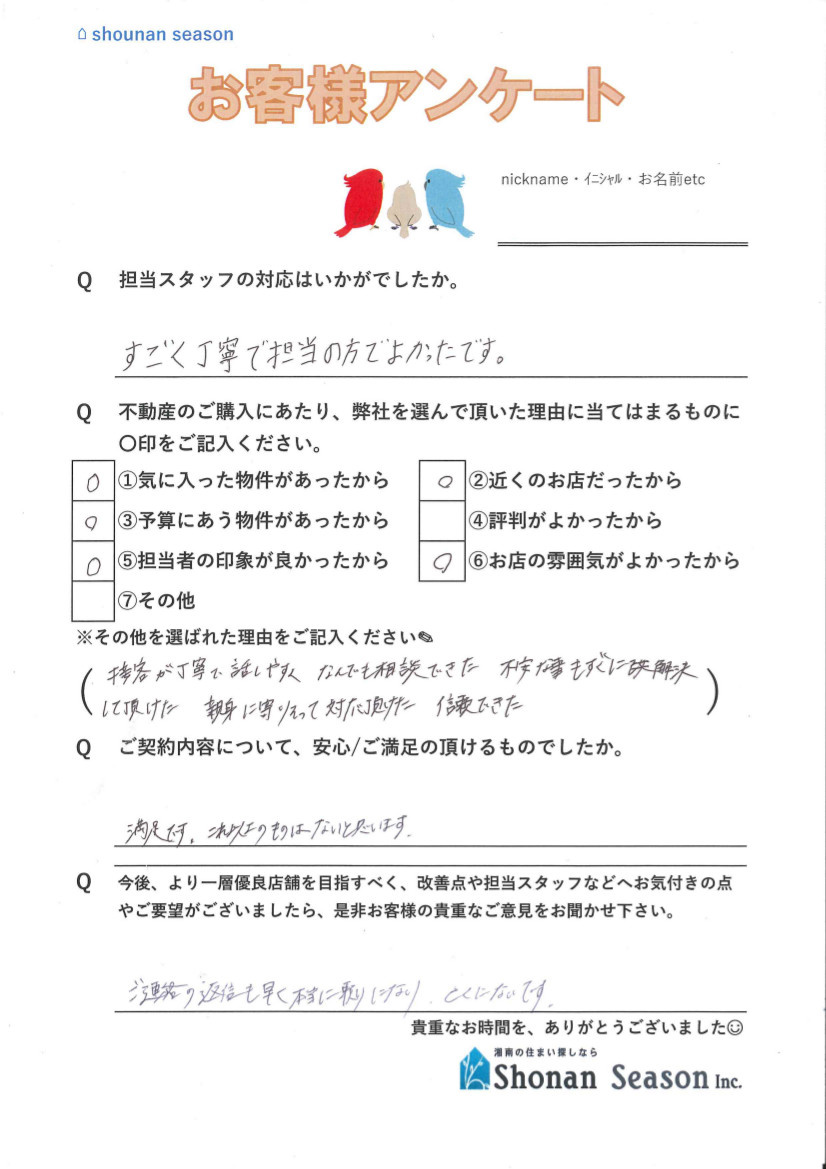 shounan season
お客様アンケート
nickname・ｲﾆｼｬﾙ・お名前etc
Q 担当スタッフの対応はいかがでしたか。
すごく丁寧で担当の方でよかったです。
Q 不動産のご購入にあたり、弊社を選んで頂いた理由に当てはまるものに
〇印をご記入ください。
○ ①気に入った物件があったから ○ ②近くのお店だったから
○ ③予算にあう物件があったから ④評判がよかったから
○ ⑤担当者の印象が良かったから ○ ⑥お店の雰囲気がよかったから
⑦その他
※その他を選ばれた理由をご記入ください✎
(接客が丁寧で話しやすく なんでも相談できた 不安な事もすぐに解決
して頂けた 親身に寄りそって対応頂けた 信頼できた)
Q ご契約内容について、安心/ご満足の頂けるものでしたか。
満足です。これ以上のものはないと思います。
Q 今後、より一層優良店舗を目指すべく、改善点や担当スタッフなどへお気付きの点
やご要望がございましたら、是非お客様の貴重なご意見をお聞かせ下さい。
ご連絡の返信も早く本当に頼りになり、とくにないです。
貴重なお時間を、ありがとうございました☺
湘南の住まい探しなら
Shonan Season Inc.